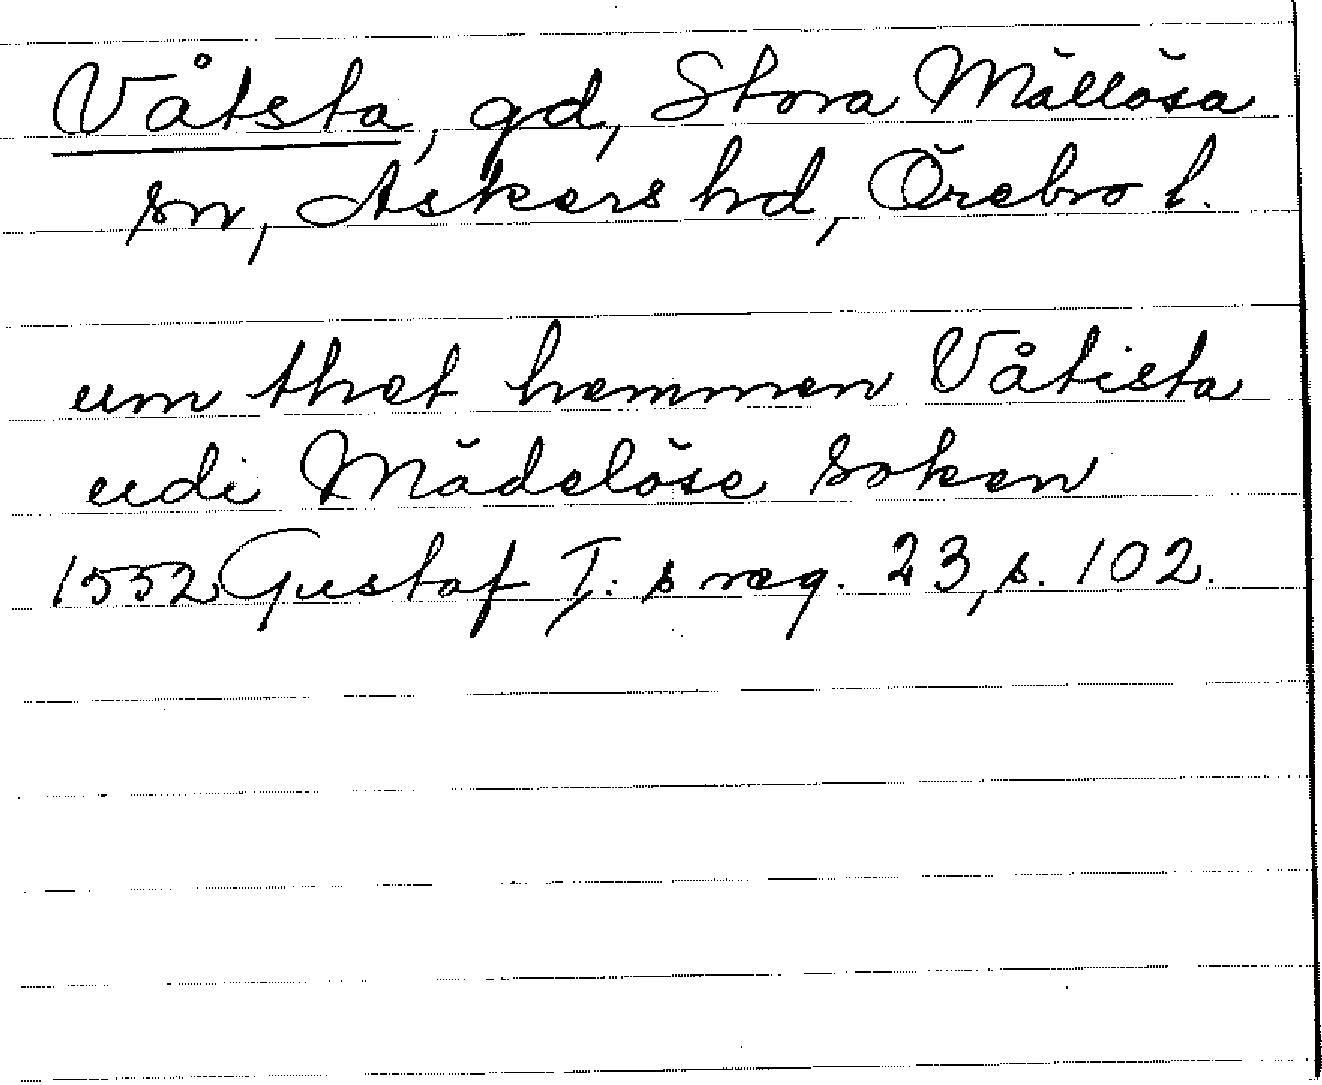 Våtsta, gd, Stora Mällösa
sn, Askers hd, Örebro l.
um thet hemmen Våtista
udi Mädelöse soken
1552 Gustaf I: s reg. 23, s. 102.